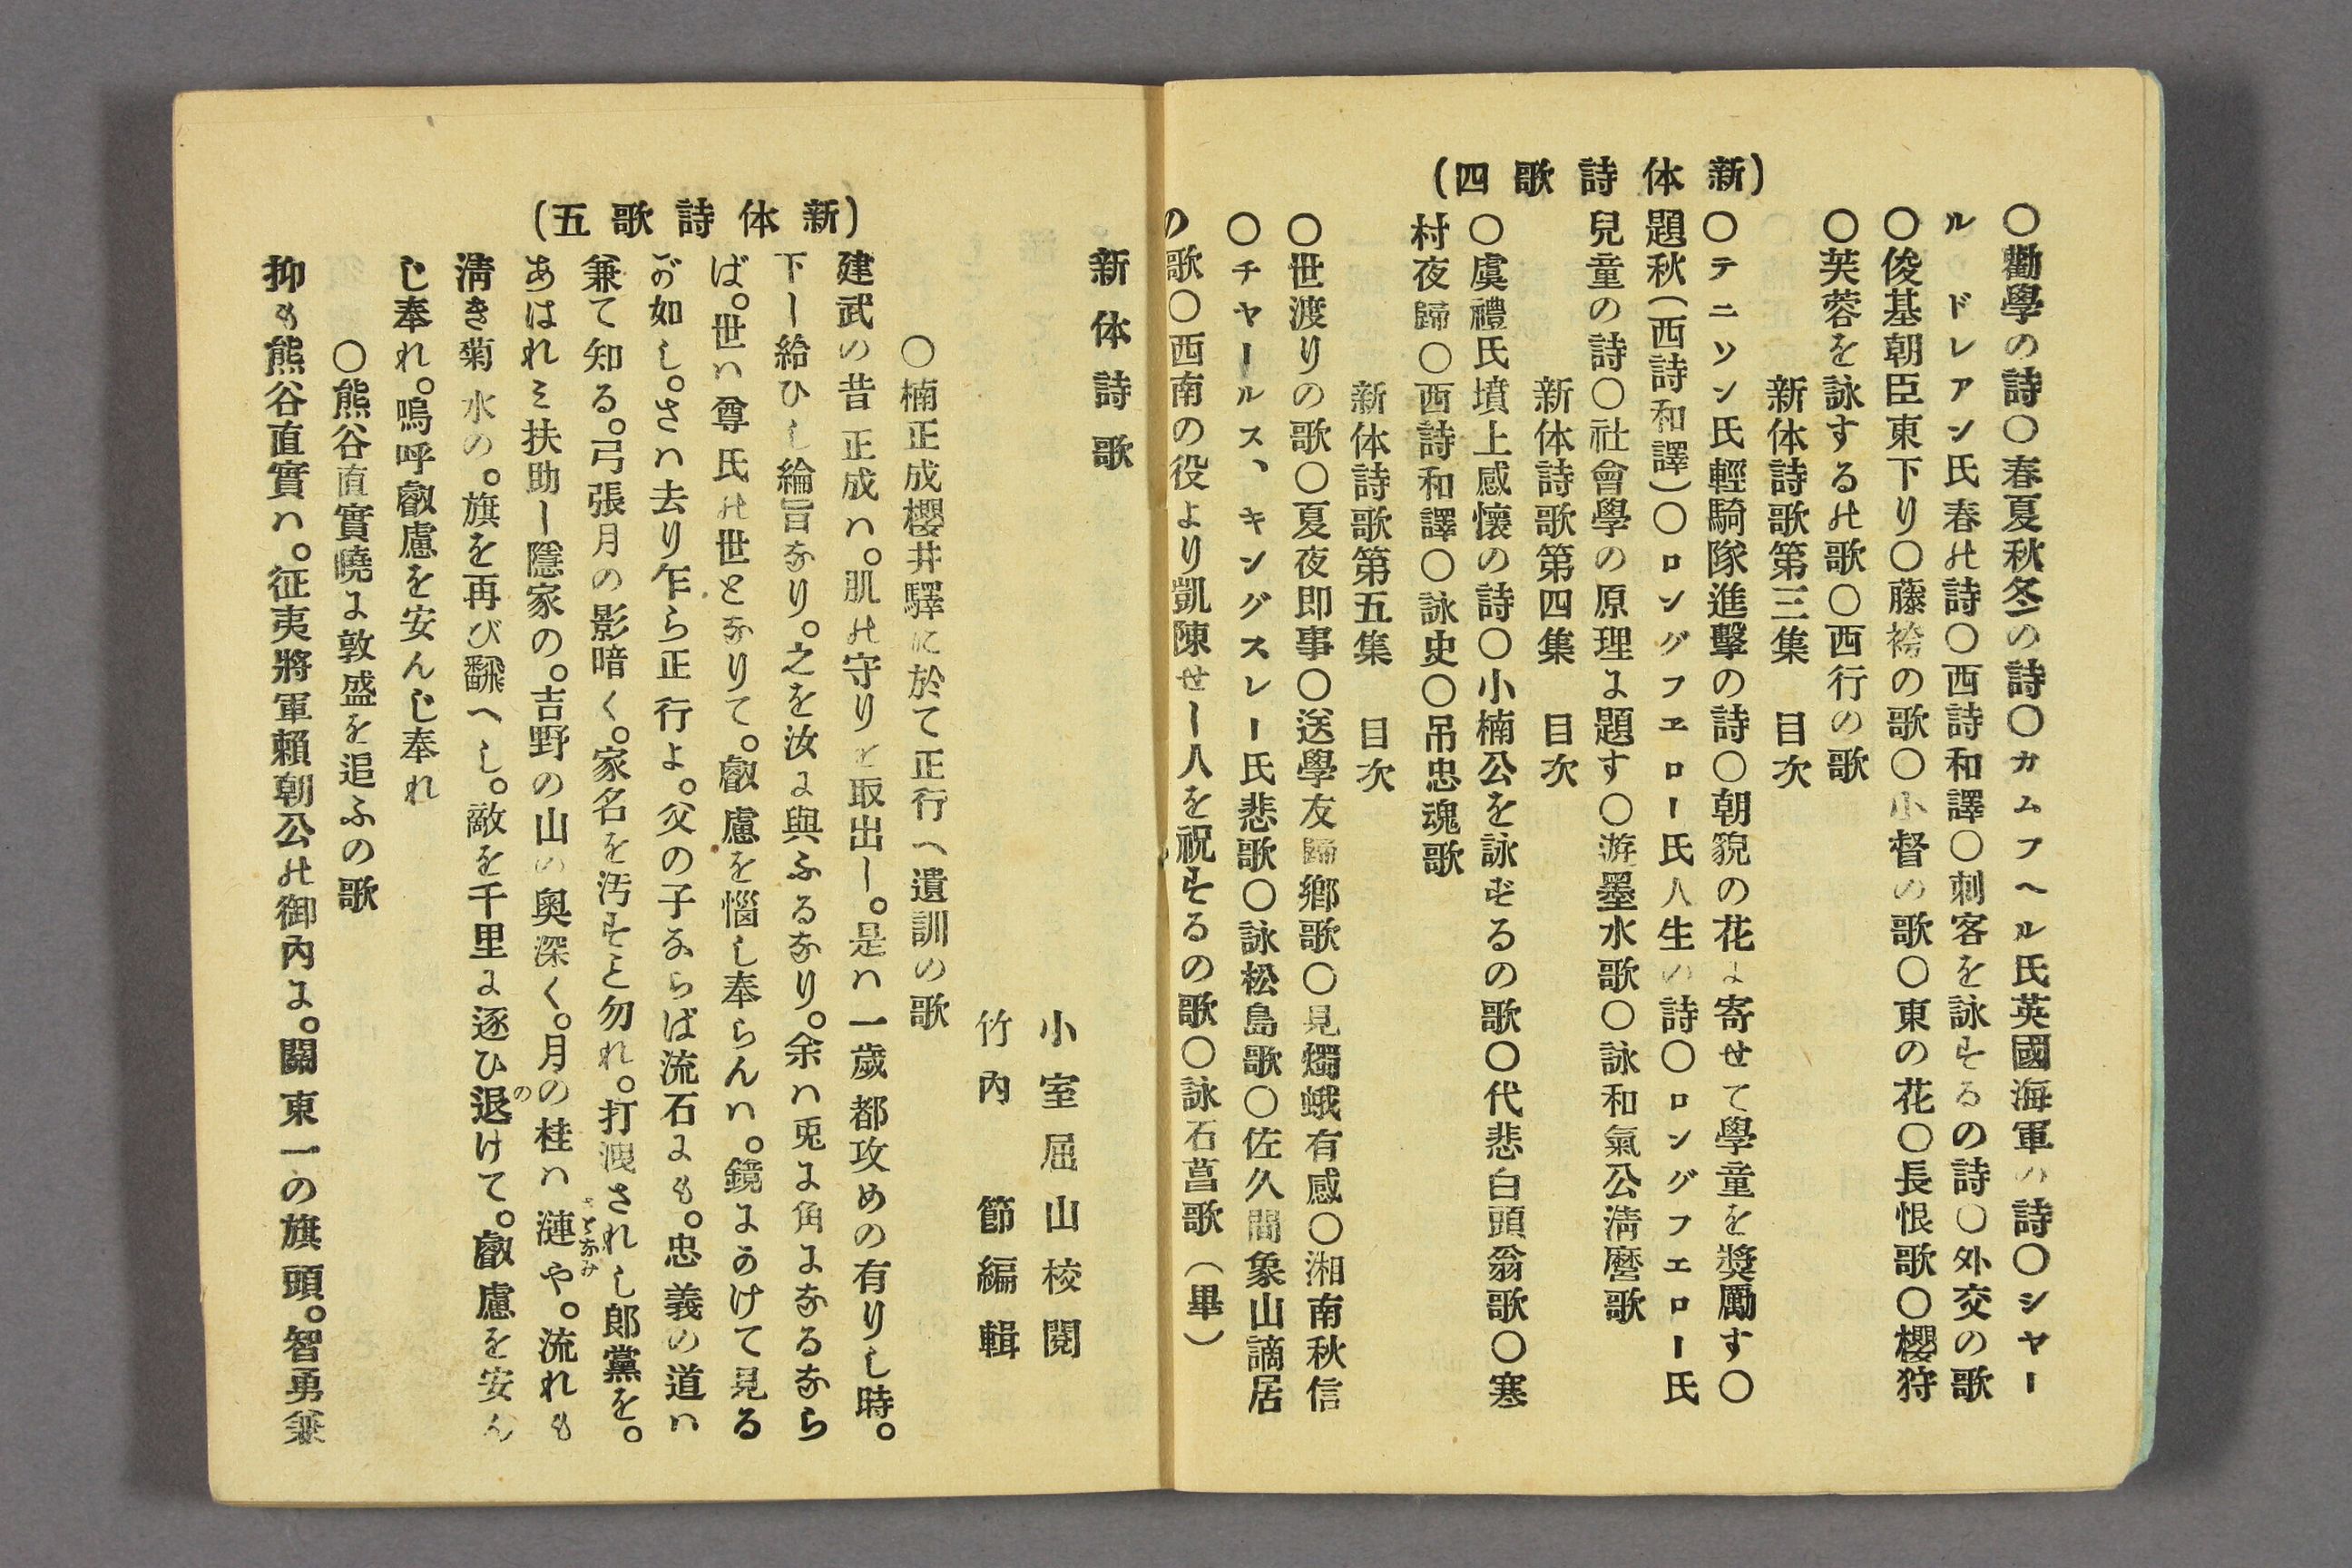 (新体詩歌四)
〇勸學の詩〇春夏秋冬の詩〇カムプヘル氏英國海軍の詩〇シヤー
ル ドレアン氏春の詩〇西詩和譯〇刺客を詠ずるの詩〇外交の歌
〇俊基朝臣東下り〇藤袴の歌〇小督の歌〇東の花〇長恨歌〇櫻狩
〇芙蓉を詠するの歌〇西行の歌
新体詩歌第三集 目次
〇テニソン氏輕騎隊進擊の詩〇朝貌の花に寄せて學童を奬勵す〇
題秋(西詩和譯)〇ロングフエロー氏人生の詩〇ロングフエロー氏
兒童の詩〇社會學の原理に題す〇游墨水歌〇詠和氣公淸麿歌
新体詩歌第四集 目次
〇虞禮氏墳上感懷の詩〇小楠公を詠ずるの歌〇代悲白頭翁歌〇寒
村夜歸〇西詩和譯〇詠史〇吊忠魂歌
新体詩歌第五集 目次
〇世渡りの歌〇夏夜即事〇送學友歸鄕歌〇見燭蛾有感〇湘南秋信
〇チヤールス、キングスレー氏悲歌〇詠松島歌〇佐久間象山謫居
の歌〇西南の役より凱陳せし人を祝するの歌〇詠石菖歌 (畢)
(新体詩歌五)
新体詩歌
小室屈山校閱
竹內 節編輯
〇楠正成櫻井驛に於て正行へ遺訓の歌
建武の昔正成ハ。肌の守りを取出し。是ハ一歲都攻めの有りし時。
下し給ひし綸旨なり。之を汝に與ふるなり。余ハ兎に角になるなら
ば。世ハ尊氏の世となりて。叡慮を惱し奉らんハ。鏡にかけて見る
が如し。さハ去り乍ら正行よ。父の子ならば流石にも。忠義の道ハ
兼て知る。弓張月の影暗く。家名を汚すこと勿れ。打洩されし郞黨を。
あはれミ扶助し隱家の。吉野の山の奧深く。月の桂ハ漣や。流れも
さざなみ
淸き菊水の。旗を再び飜へし。敵を千里に逐ひ退けて。叡慮を安ん
の
じ奉れ。嗚呼叡慮を安んじ奉れ
〇熊谷直實曉に敦盛を追ふの歌
抑も熊谷直實ハ。征夷將軍賴朝公の御內に。關東一の旗頭。智勇兼